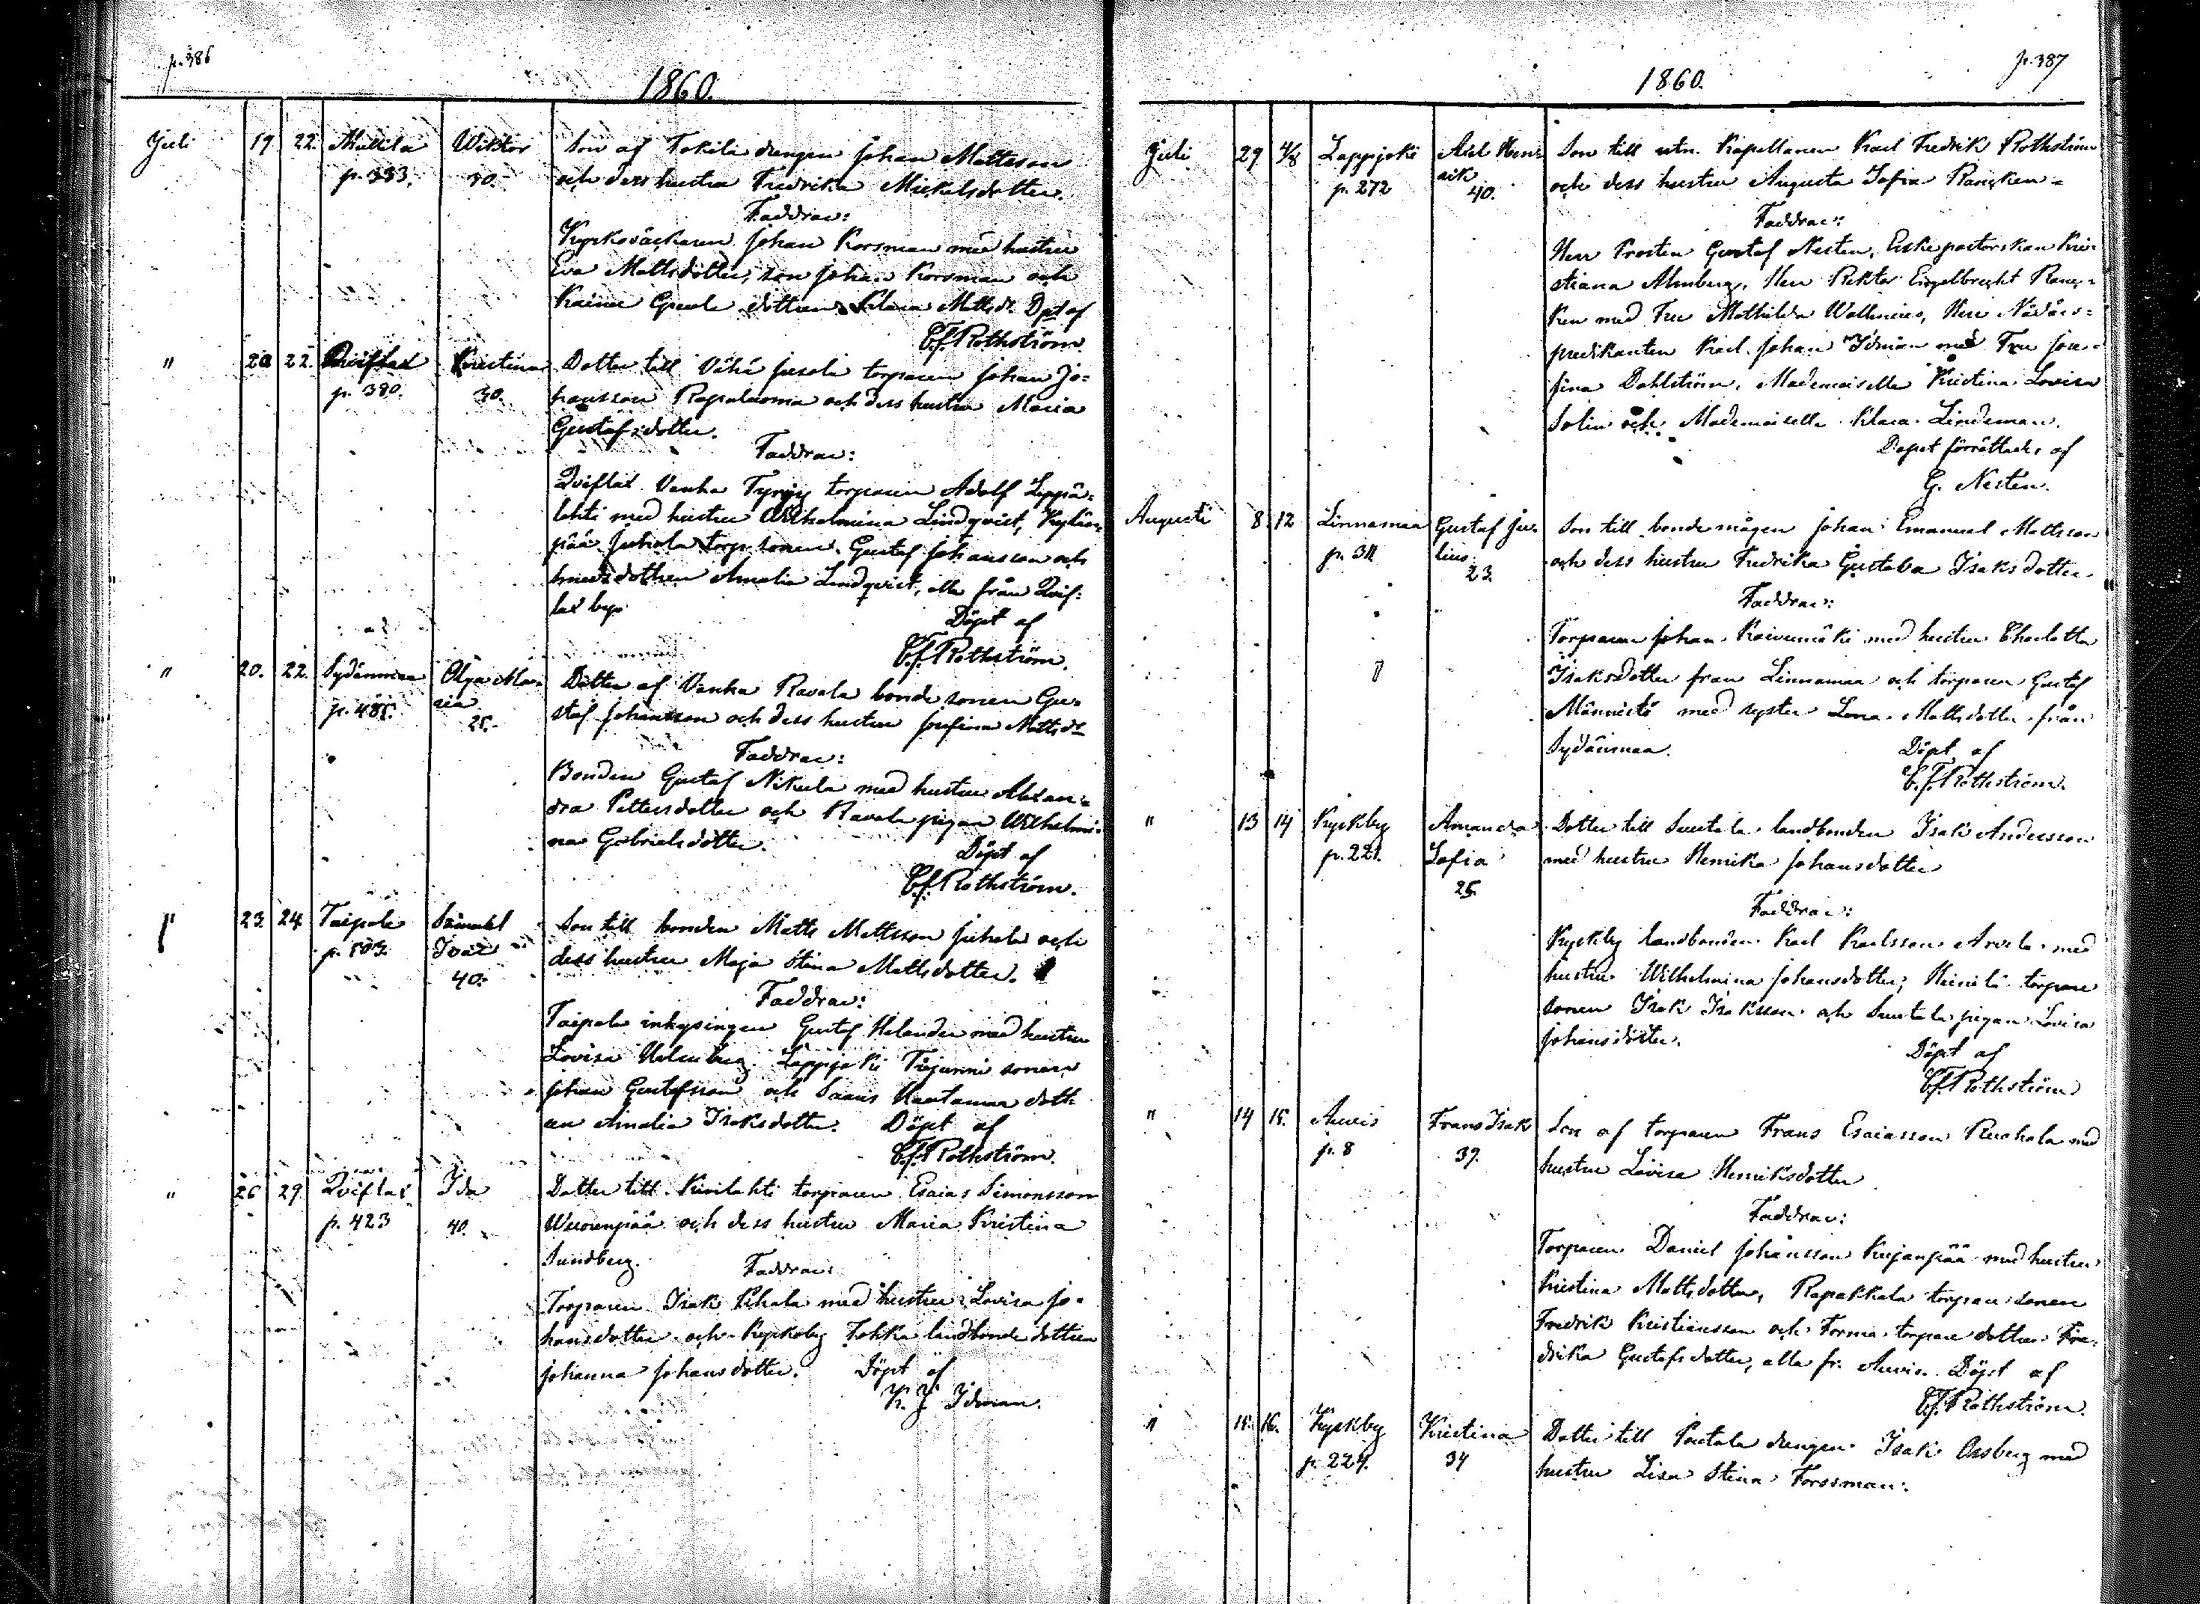 p. 386
1860.
Juli 19 22. Mullila Wiktor Son af Tokila drengen Johan Mattsson
p. 333. 30. och dess hustru Fredrika Mickelsdotter.
Faddrar:
Kyrkoväktaren Johan Korsman med hustru
Eva Mattsdotter, son Johan Korsman och
dottren Klara Mattsdr Dpt af
C.f. Rothström.
" 20 22. Qviflax Kristina Dotter till Vähä Jussila torparen Johan Jo-
p. 380. 30. hansson och dess hustru Maria
Gustafsdotter.
Faddrar:
Qviflax Vanha Tyrny torparen Adolf Leppä-
lehti med hustru Wilhelmina Lindqvist,
pää Juhola torp. sonen Gustaf Johansson och
dottren Amalia Lindqvist, alla från Qvif-
lax by.
Döpt af
C.f. Rothström.
" 20. 22. Sydänmaa Olga Ma- Dotter af Vanha Ravala bonde sonen Gu-
p. 485. ria staf Johansson och dess hustru Josefina Mattsdr
25.
Faddrar:
Bonden Gustaf Nikula med hustru Alexan-
dra Pettersdotter och Ravala pigan Wilhelmi-
na Gabrielsdotter.
Döpt af
C.f. Rothström.
" 23. 24 Taipale Samuel Son till bonden Matts Mattsson Juhola och
p. 503. Ivar dess hustru Maja Stina Mattsdotter.
40.
Faddrar:
Taipale inhysingen Gustaf Helander med hustru
Lovisa Lappjoki sonen
Johan Gustafsson och Saaris Hautamaa dott-
ren Amalia Isaksdotter. Döpt af
C.f. Rothström.
" 26 29. Qviflax Ida Dotter till Kivilahti torparen Esaias Simonsson
p. 423 40. Wuorenpää och dess hustru Maria Kristina
Sundberg.
Faddrar:
Torparen Isak med hustru Lovisa Jo-
hansdotter och Kyrkoby Jokka landbonde dottren
Johanna Johansdotter. Döpt af
K. J. Idman.
p. 387
1860.
Juli 29 4/8 Lappjoki Axel Hen- Son till Kapellanen Karl Fredrik Rothström
p. 272 rik och dess hustru Augusta Sofia Rancken-
40.
Faddrar:
Herr Prosten Gustaf Nestén, Enkepastorskan Kri-
stiana Almberg, Herr Rektor Engelbrecht Ranc-
ken med Fru Mathilda Wallenius, Herr Nådårs-
predikanten Karl Johan Idman med Fru Jose-
fina Dahlström, Mademoiselle Kristina Lovisa
Solin och Mademoiselle Klara Lindeman.
Dopet förrättades af
G. Nestén.
Augusti 8 12 Linnamaa Gustaf Ju- Son till bonde mågen Johan Emanuel Mattsson
p. 311 lius och dess hustru Fredrika Gustava Isaksdotter.
23.
Faddrar:
Torparen Johan Koivumäki med hustru Charlotta
Isaksdotter från Linnamaa och torparen Gustaf
Männistö med syster Lena Mattsdotter från
Sydänmaa.
Döpt af
C.f. Rothström.
" 13 14 Kyrkby Amanda Dotter till Suutala landbonden Isak Andersson
p. 221. Sofia med hustru Henrika Johansdotter
25.
Faddrar:
Kyrkby landbonden Karl Karlsson Arvela med
hustru Wilhelmina Johansdotter, Heinilä torpare
sonen Isak Isaksson och Suutala pigan Lovisa
Johansdotter.
Döpt af
C.f. Rothström
" 14 15. Auvis Frans Isak Son af torparen Frans Esaiasson med
p. 8 37. hustru Lovisa Henriksdotter
Faddrar:
Torparen Daniel Johansson Kujanpää med hustru
Kristina Mattsdotter, Rapakkala torpare sonen
Fredrik Kristiansson och Torma torpare dottren Fre-
drika Gustafsdotter, alla fr. Auvis. Döpt af
C.f. Rothström.
" 15. 16. Kyrkby Kristina Dotter till drengen Isak med
p. 224. 34 hustru Lisa Stina Forssman.